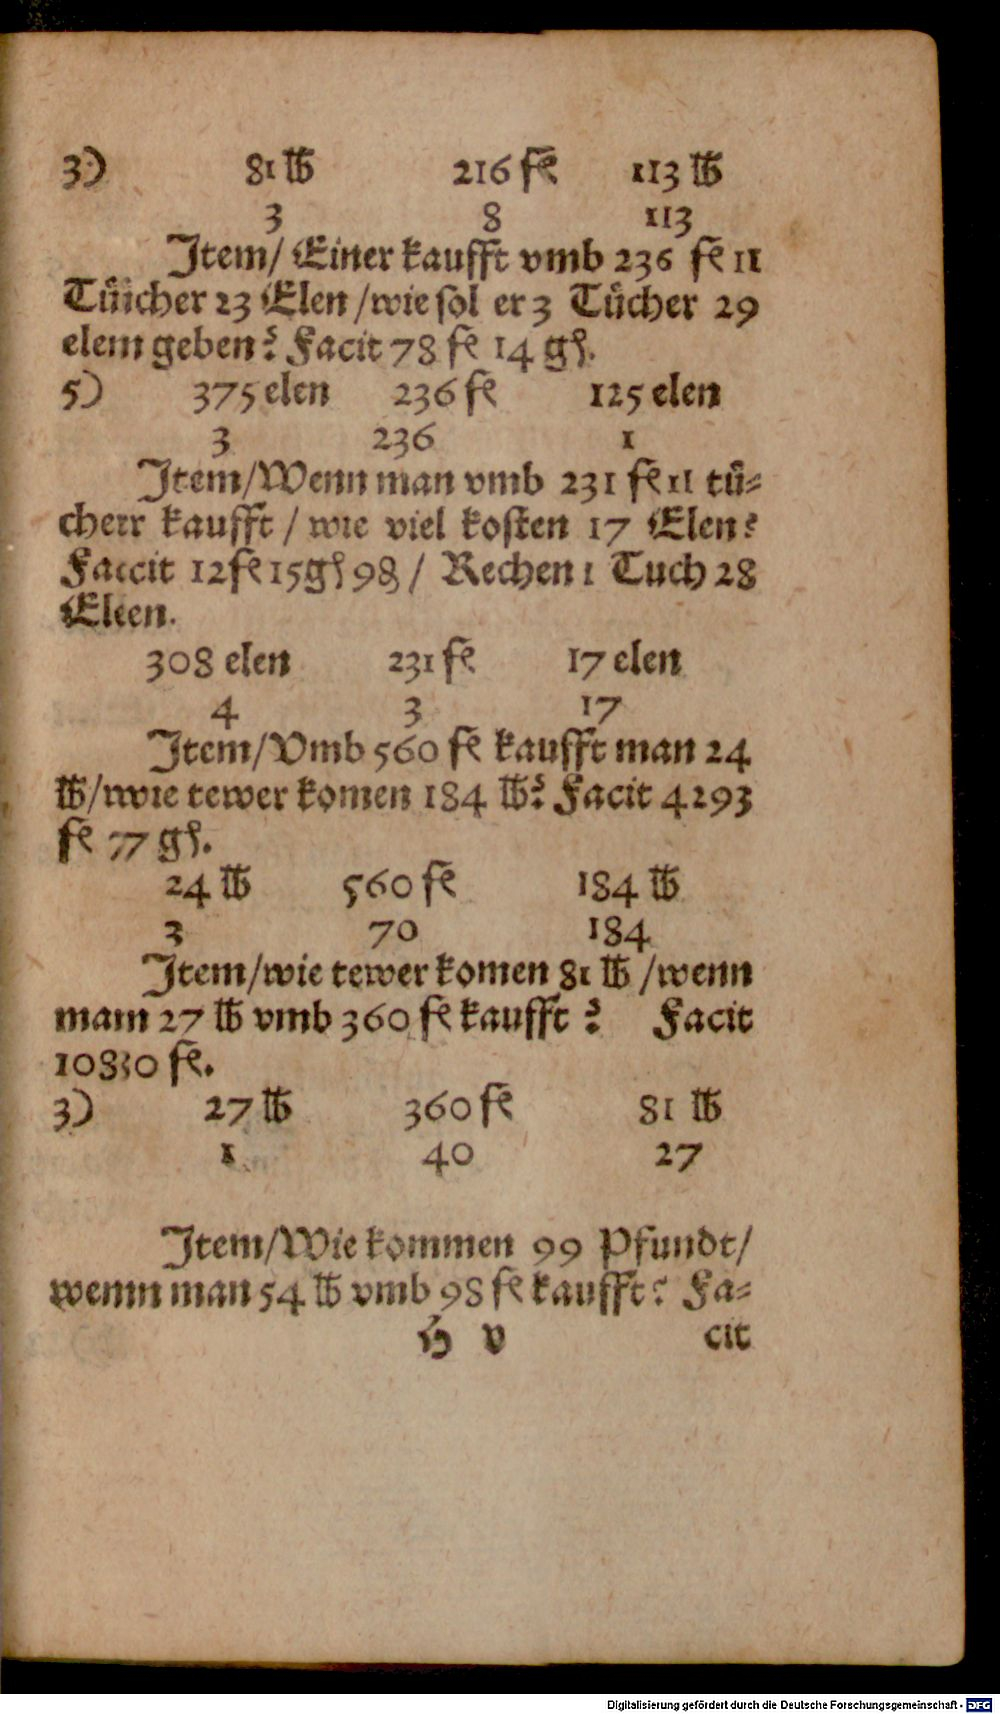 3) 81 ℔ 216 fƐ 113 ℔
3 8 113
Jtem/ Einer kaufft vmb 236 fƐ 11
Tuͤicher 23 Elen /wie ſol er 3 Tuͤcher 29
elem geben? Facit 78 fƐ 14 gƷ.
5) 375 elen 236 fƐ 125 elen
3 236 1
Jtem/Wenn man vmb 231 fƐ 11 tuͤ⸗
cherr kaufft / wie viel koſten 17 Elen?
Faccit 12 fƐ 15 gƷ 98 / Rechen 1 Tuch 28
Eleen.
308 elen 231 fƐ 17 elen
4 3 17
Jtem/Vmb 560 fƐ kaufft man 24
℔/wwie tewer komen 184 ℔? Facit 4293
fƐ 77 gƷ.
24 ℔ 560 fƐ 184 ℔
3 70 184
Jtem/wie tewer komen 81 ℔ /wenn
mam 27 ℔ vmb 360 fƐ kaufft ? Facit
10830 fƐ.
3) 27 ℔ 360 fƐ 81 ℔
1 40 27
Jtem/Wie kommen 99 Pfundt/
wemn man 54 ℔ vmb 98 fƐ kaufft? Fa⸗
H v cit
Digitalisierung gefördert durch die Deutsche Forschungsgemeinschaft - DFG